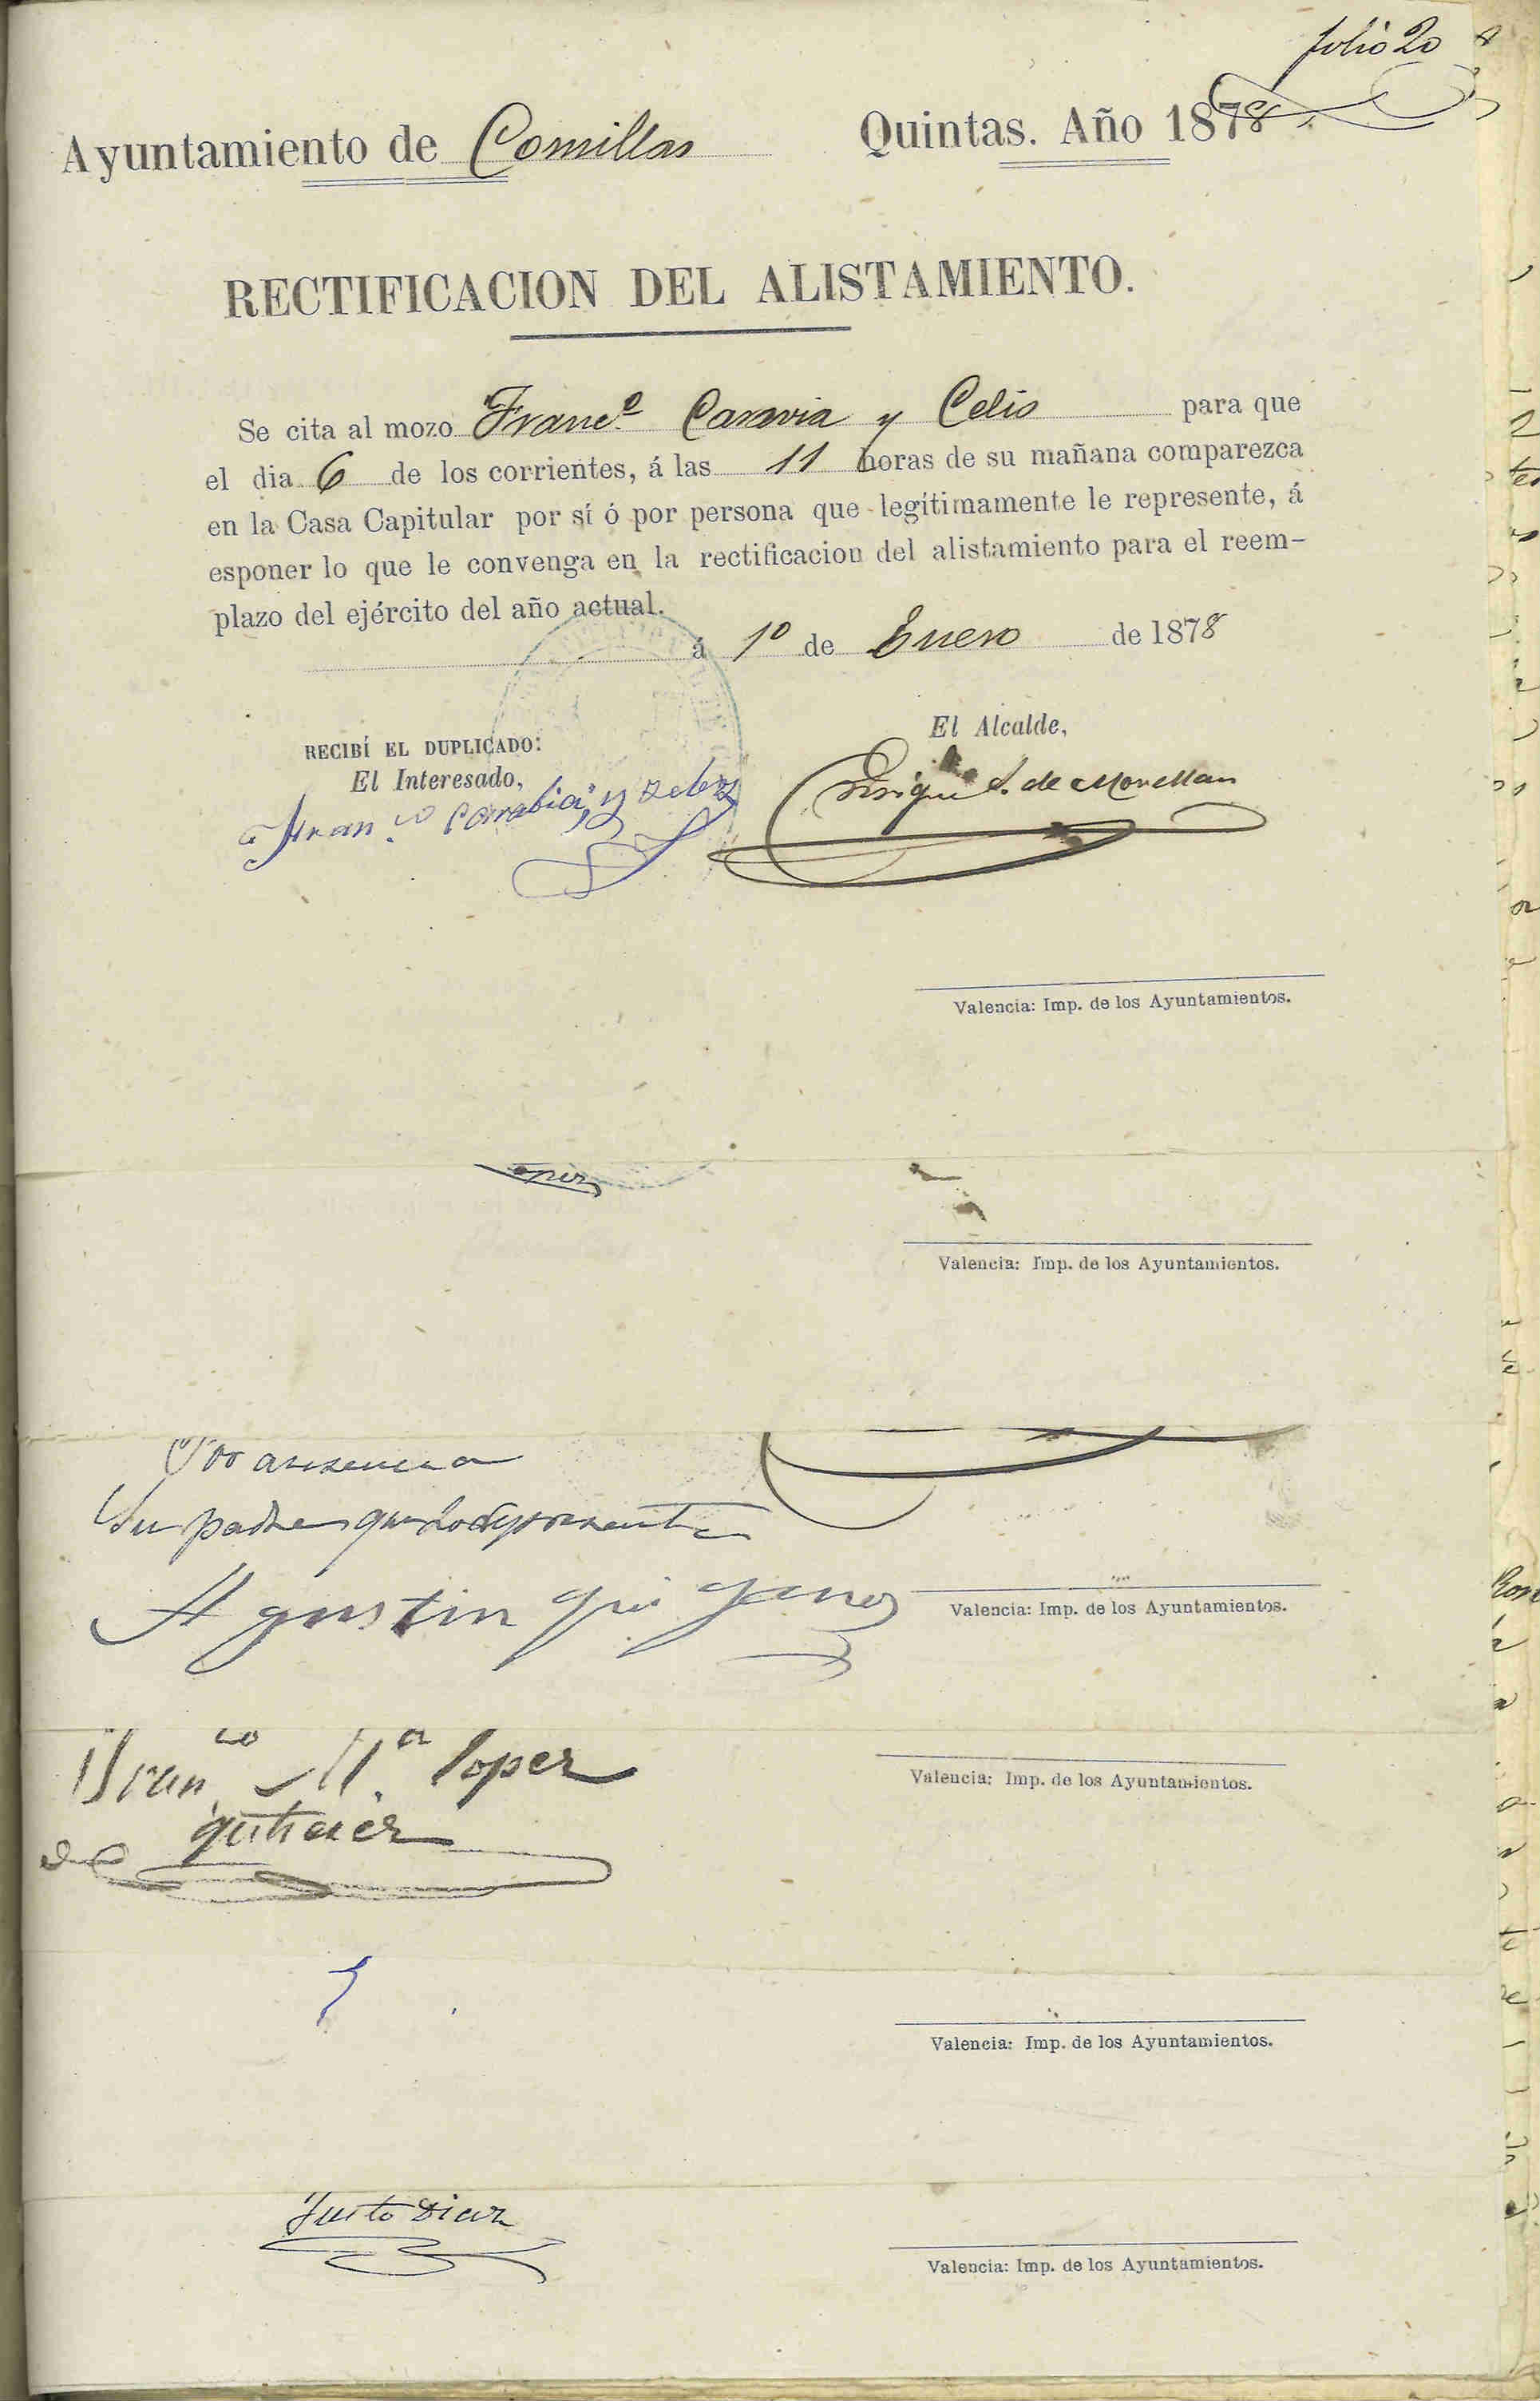 folio 20
Ayuntamiento de Comillas Quintas. Año 1878.
RECTIFICACION DEL ALISTAMIENTO.
Se cita al mozo Franc.º Caravia y Celis para que
el dia 6 de los corrientes, á las 11 horas de su mañana comparezca
en la Casa Capitular por sí ó por persona que legítimamente le represente, á
esponer lo que le convenga en la rectificacion del alistamiento para el reem-
plazo del ejército del año actual.
á 1º de Enero de 1878
El Alcalde,
RECIBÍ EL DUPLICADO:
El Interesado,
Fran.co Carabia y
Enrique de Movellan
Valencia: Imp. de los Ayuntamientos.
Valencia: Imp. de los Ayuntamientos.
Por ausencia
Su padre
Agustin
Valencia: Imp. de los Ayuntamientos.
Fran.co M.a Lopez
de
Valencia: Imp. de los Ayuntamientos.
Valencia: Imp. de los Ayuntamientos.
Justo Diaz
Valencia: Imp. de los Ayuntamientos.